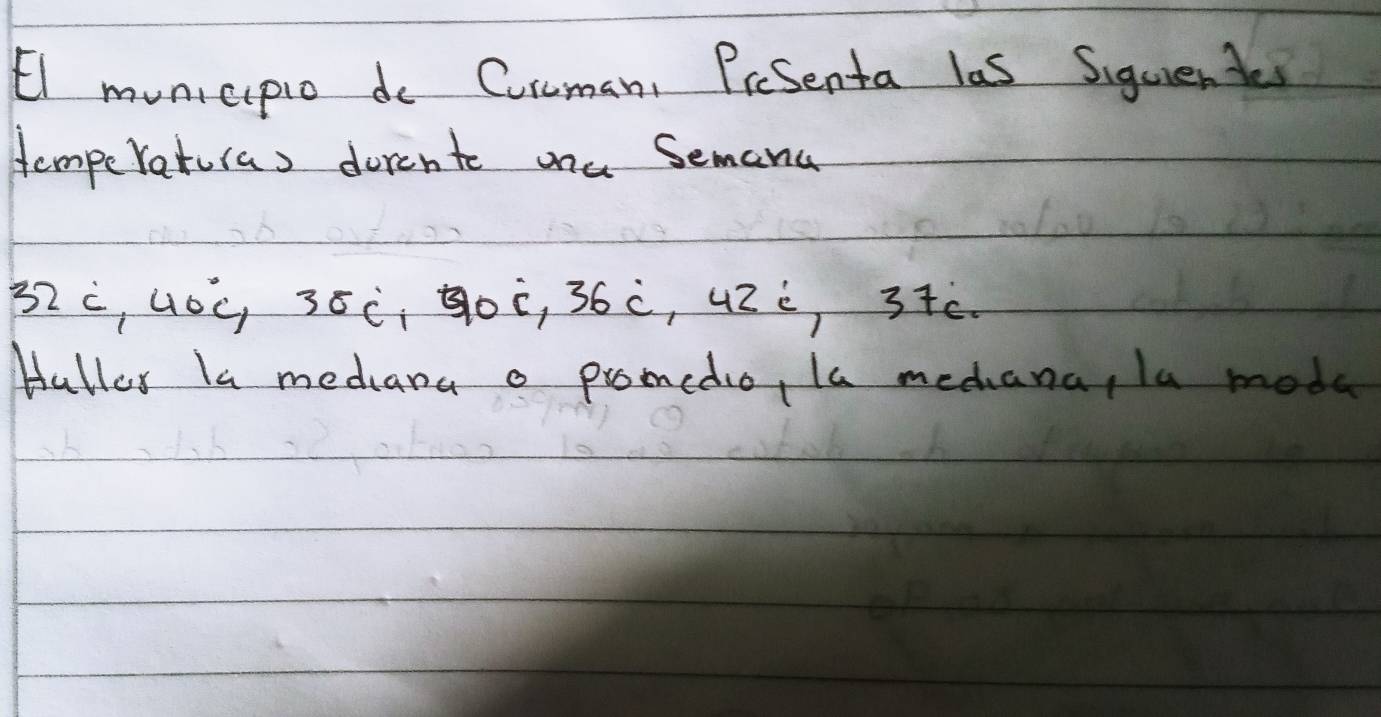 El municipio de Curumani Presenta las Siguientes
temperaturas durante una Semana
32 ċ, 40 ċ, 38 ċ, 40 ċ, 36 ċ, 42 ċ, 37 ċ.
Hallar la mediana o promedio, la mediana, la moda